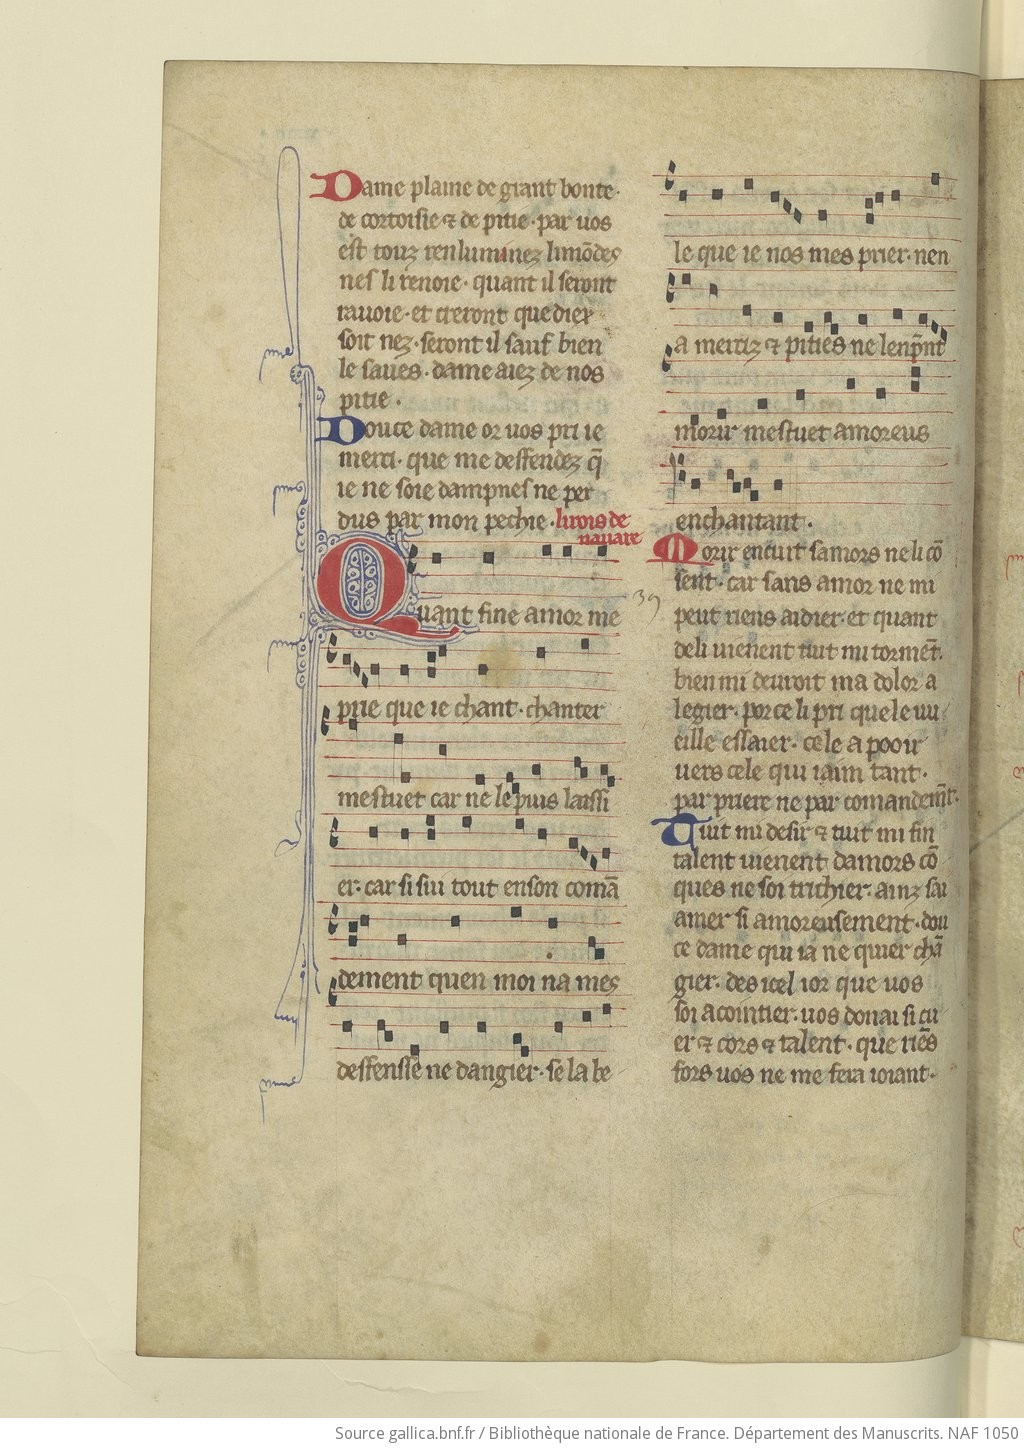 Dame plaine de grant bonte.
de cortoisie ⁊ de pitie. par uos
est touz renluminez li mõdes
nes li renoie. quant il seront
rauoie. et creront que diex
soit nez. seront il sauf bien
le saues. dame aiez de nos
pitie.
Douce dame or uos pri ie
merci. que me deffendez q̃
ie ne soie dampnes ne per
dus par mon pechie. li rois de
nauare
Quant fine amor me
prie que ie chant. chanter
mestuet car ne le puis laissi
er. car si sui tout en son comã
dement quen moi na mes
deffensse ne dangier. se la be
le que ie nos mes prier. nen
a merciz ⁊ pities ne lenp̃nt
morir mestuet amoreus
enchantant.
Morir en cuit samors ne li cõ
sent. car sans amor ne mi
peut riens aidier. et quant
de li uienent tuit mi tormẽt.
bien mi deuroit ma dolor a
legier. por ce li pri que le uu
eille essaier. cele a pooir
uers cele qui iaim tant.
par priere ne par comandemẽt.
Tuit mi desir ⁊ tuit mi fin
talent uienent damors cõ
ques ne soi trichier. ainz sai
amer si amoreusement. dou
ce dame qui ia ne quier chã
gier. des icel ior que uos
soi acointier. uos donai si cu
er ⁊ cors ⁊ talent. que riẽs
fors uos ne me fera ioiant.
39
Source gallica.bnf.fr / Bibliothèque nationale de France. Département des Manuscrits. NAF 1050